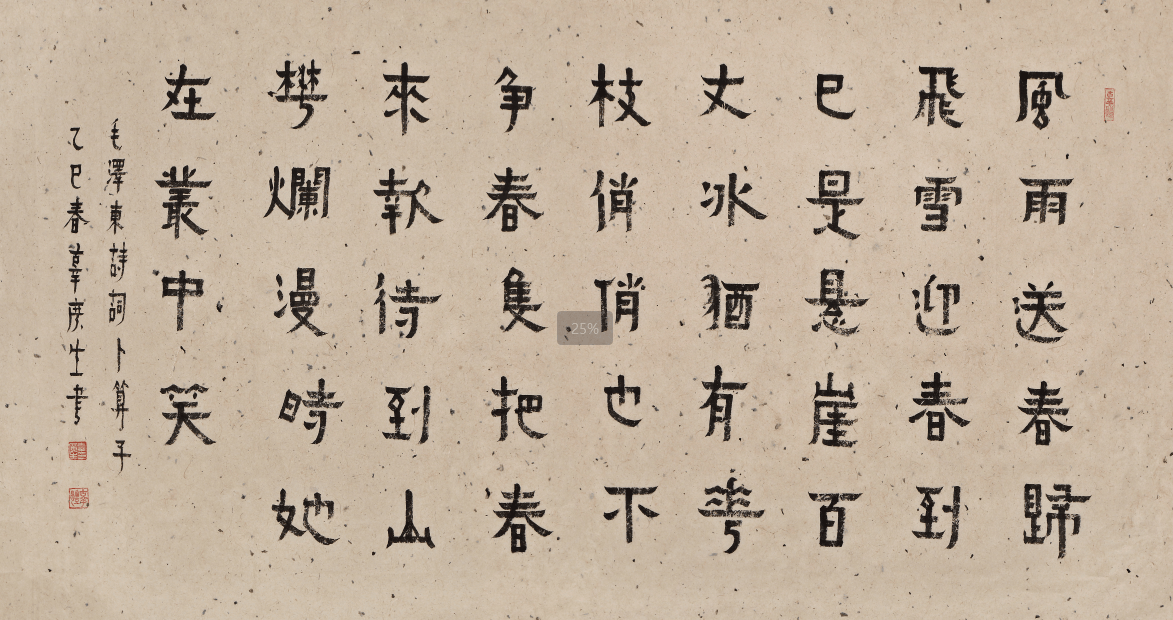 風雨送春歸
飛雪迎春到
已是悬崖百
丈冰猶有華
枝俏俏也不
争春隻把春
來報待到山
花爛漫時她
在叢中笑
毛澤東詩詞卜算子
乙巳春庆生書
25%